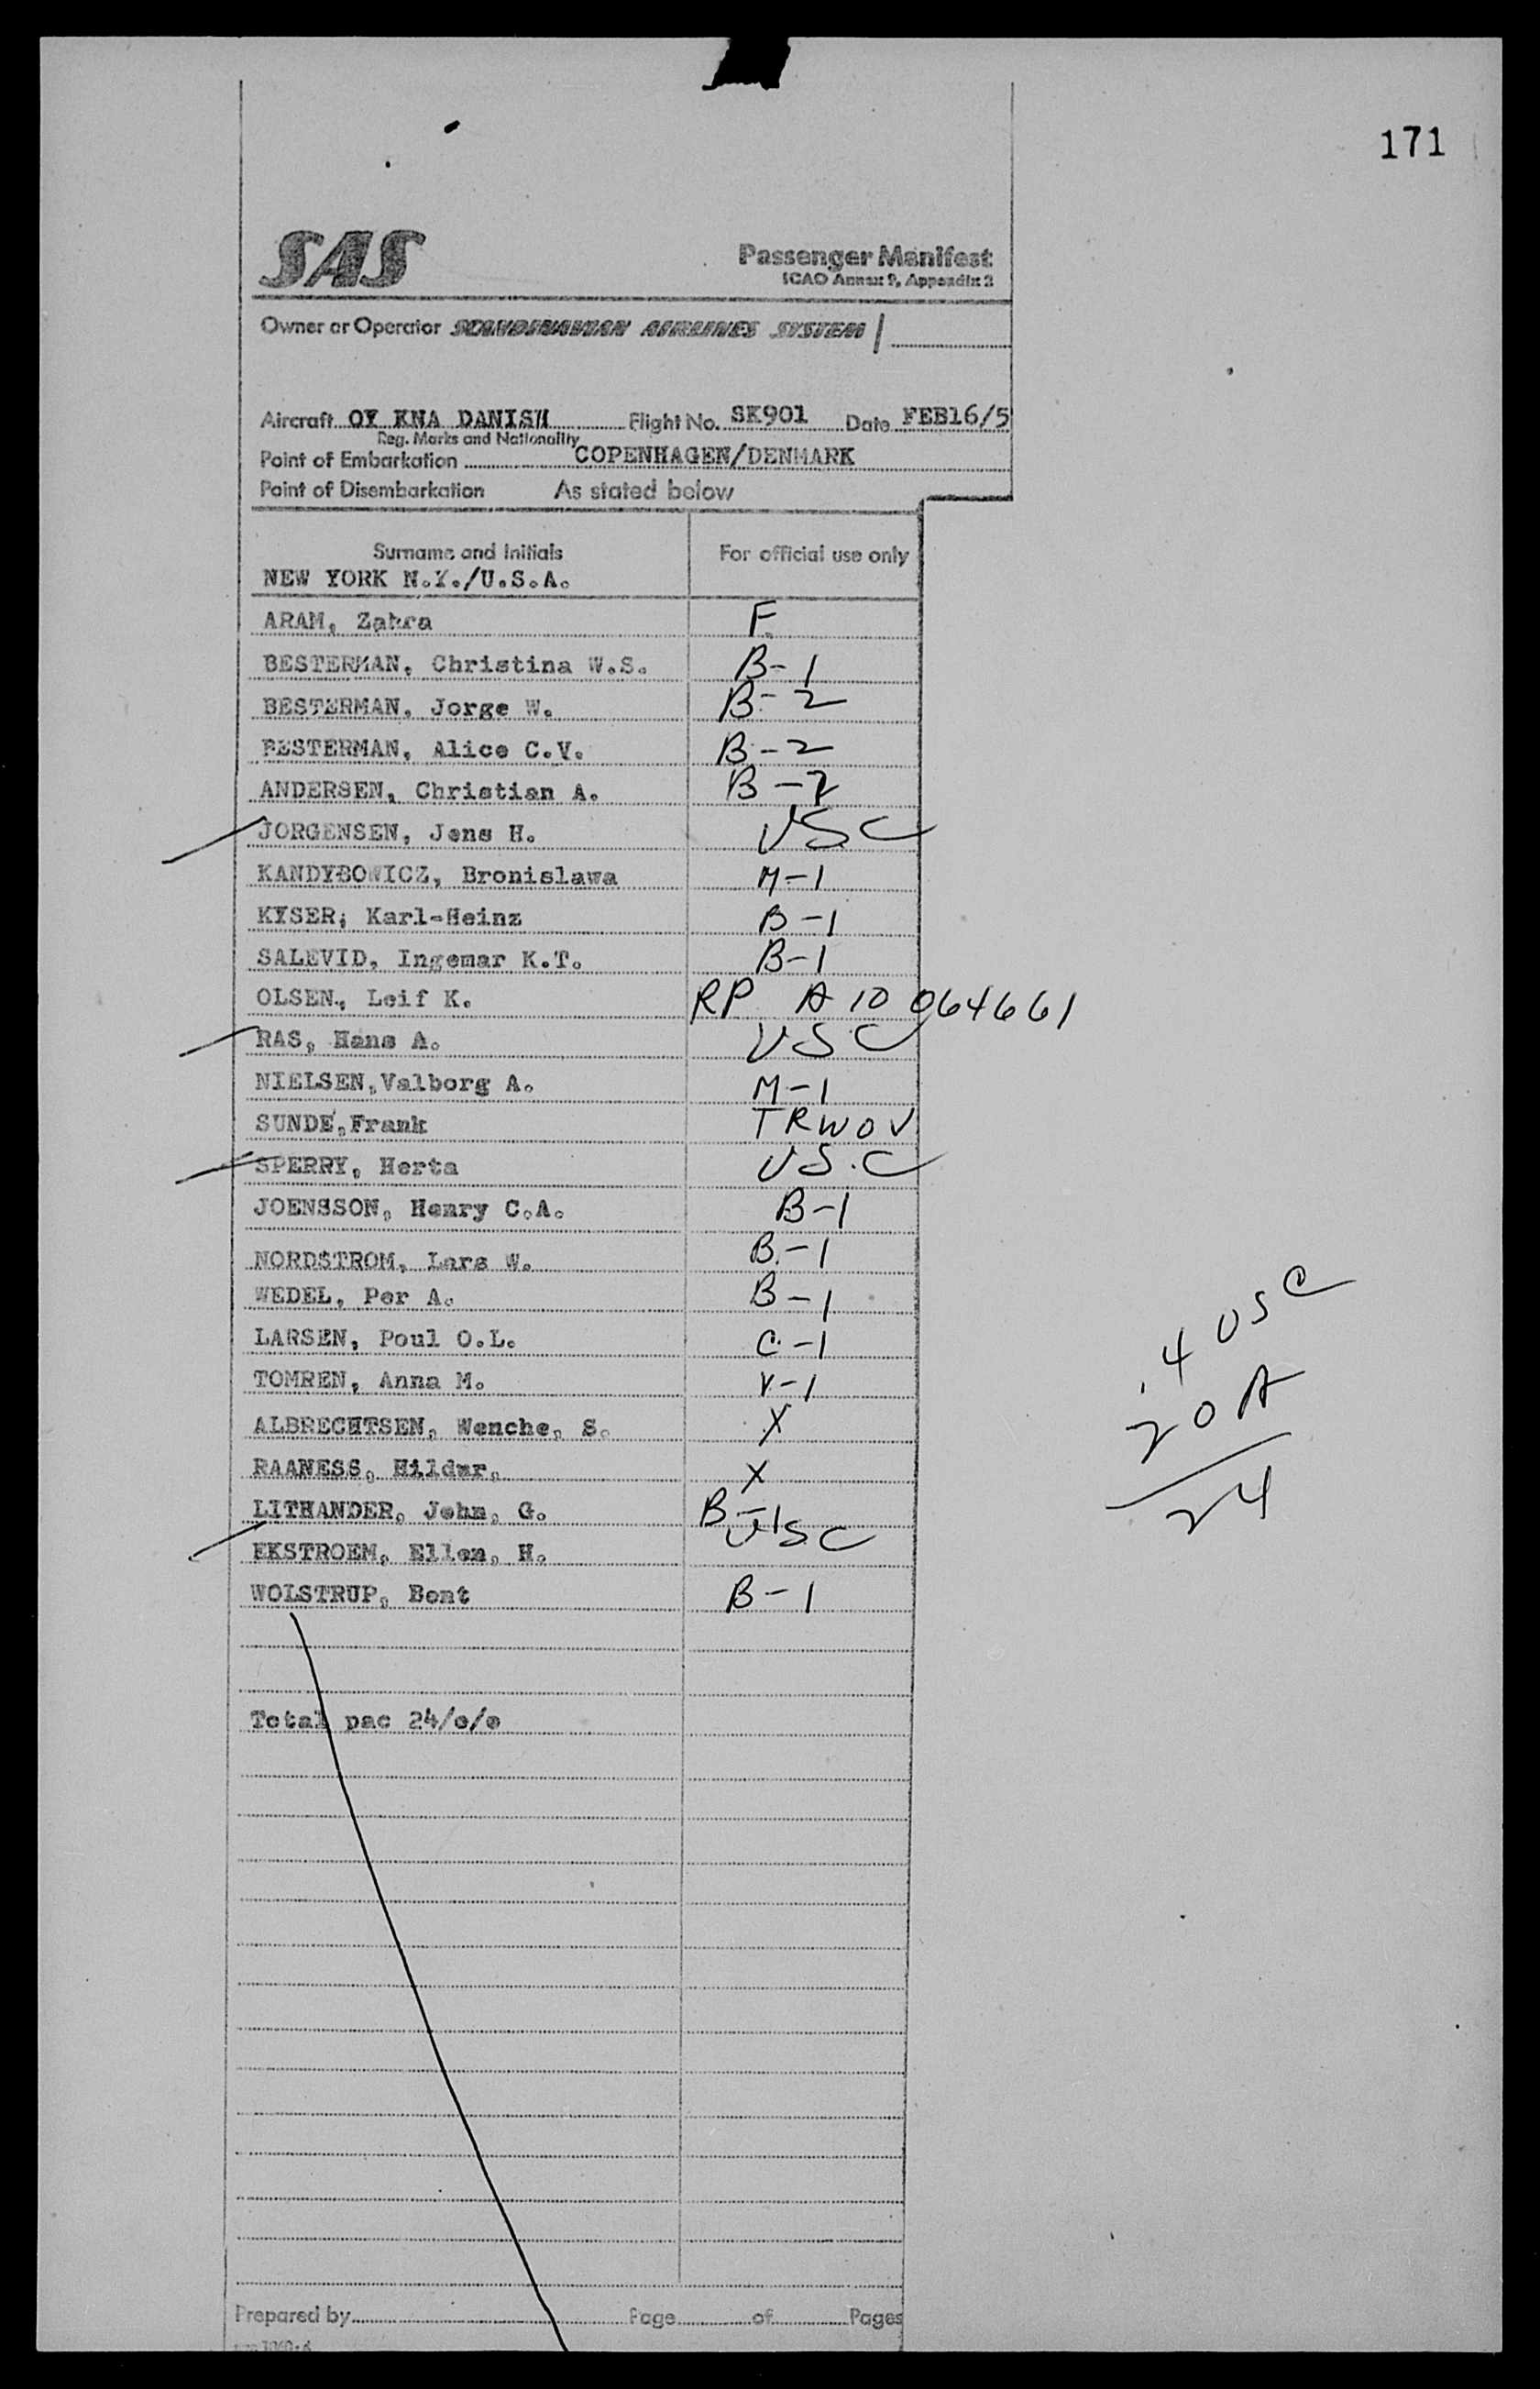 171
SAS
Passenger Manifest
ICAO Annex 9, Appendix 2
Owner or Operator SCANDINAVIAN AIRLINES SYSTEM
Aircraft OY KNA DANISH Flight No. SK901 Date FEB16/5
Reg. Marks and Nationality
Point of Embarkation COPENHAGEN/DENMARK
Point of Disembarkation As stated below
Surname and Initials For official use only
NEW YORK N.Y./U.S.A.
ARAM, Zahra F.
BESTERMAN, Christina W.S. B-1
BESTERMAN, Jorge W. B-2
BESTERMAN, Alice C.V. B-2
ANDERSEN, Christian A. B-2
JORGENSEN, Jens H. USC
KANDYBOWICZ, Bronislawa M-1
KYSER, Karl-Heinz B-1
SALEVID, Ingemar K.T. B-1
OLSEN, Leif K. RP A 10 064661
RAS, Hans A. USC
NIELSEN, Valborg A. M-1
SUNDE, Frank TRWOV
SPERRY, Herta US.C
JOENSSON, Henry C.A. B-1
NORDSTROM, Lars W. B-1
WEDEL, Per A. B-1
LARSEN, Poul O.L. C-1
TOMREN, Anna M. V-1
ALBRECHTSEN, Wenche, S. X
RAANESS, Hildur, X
LITHANDER, John, G. B-1
EKSTROEM, Ellen, H. USC
WOLSTRUP, Bent B-1
4 USC
20 A
24
Total pac 24/o/o
Prepared by Page of Pages